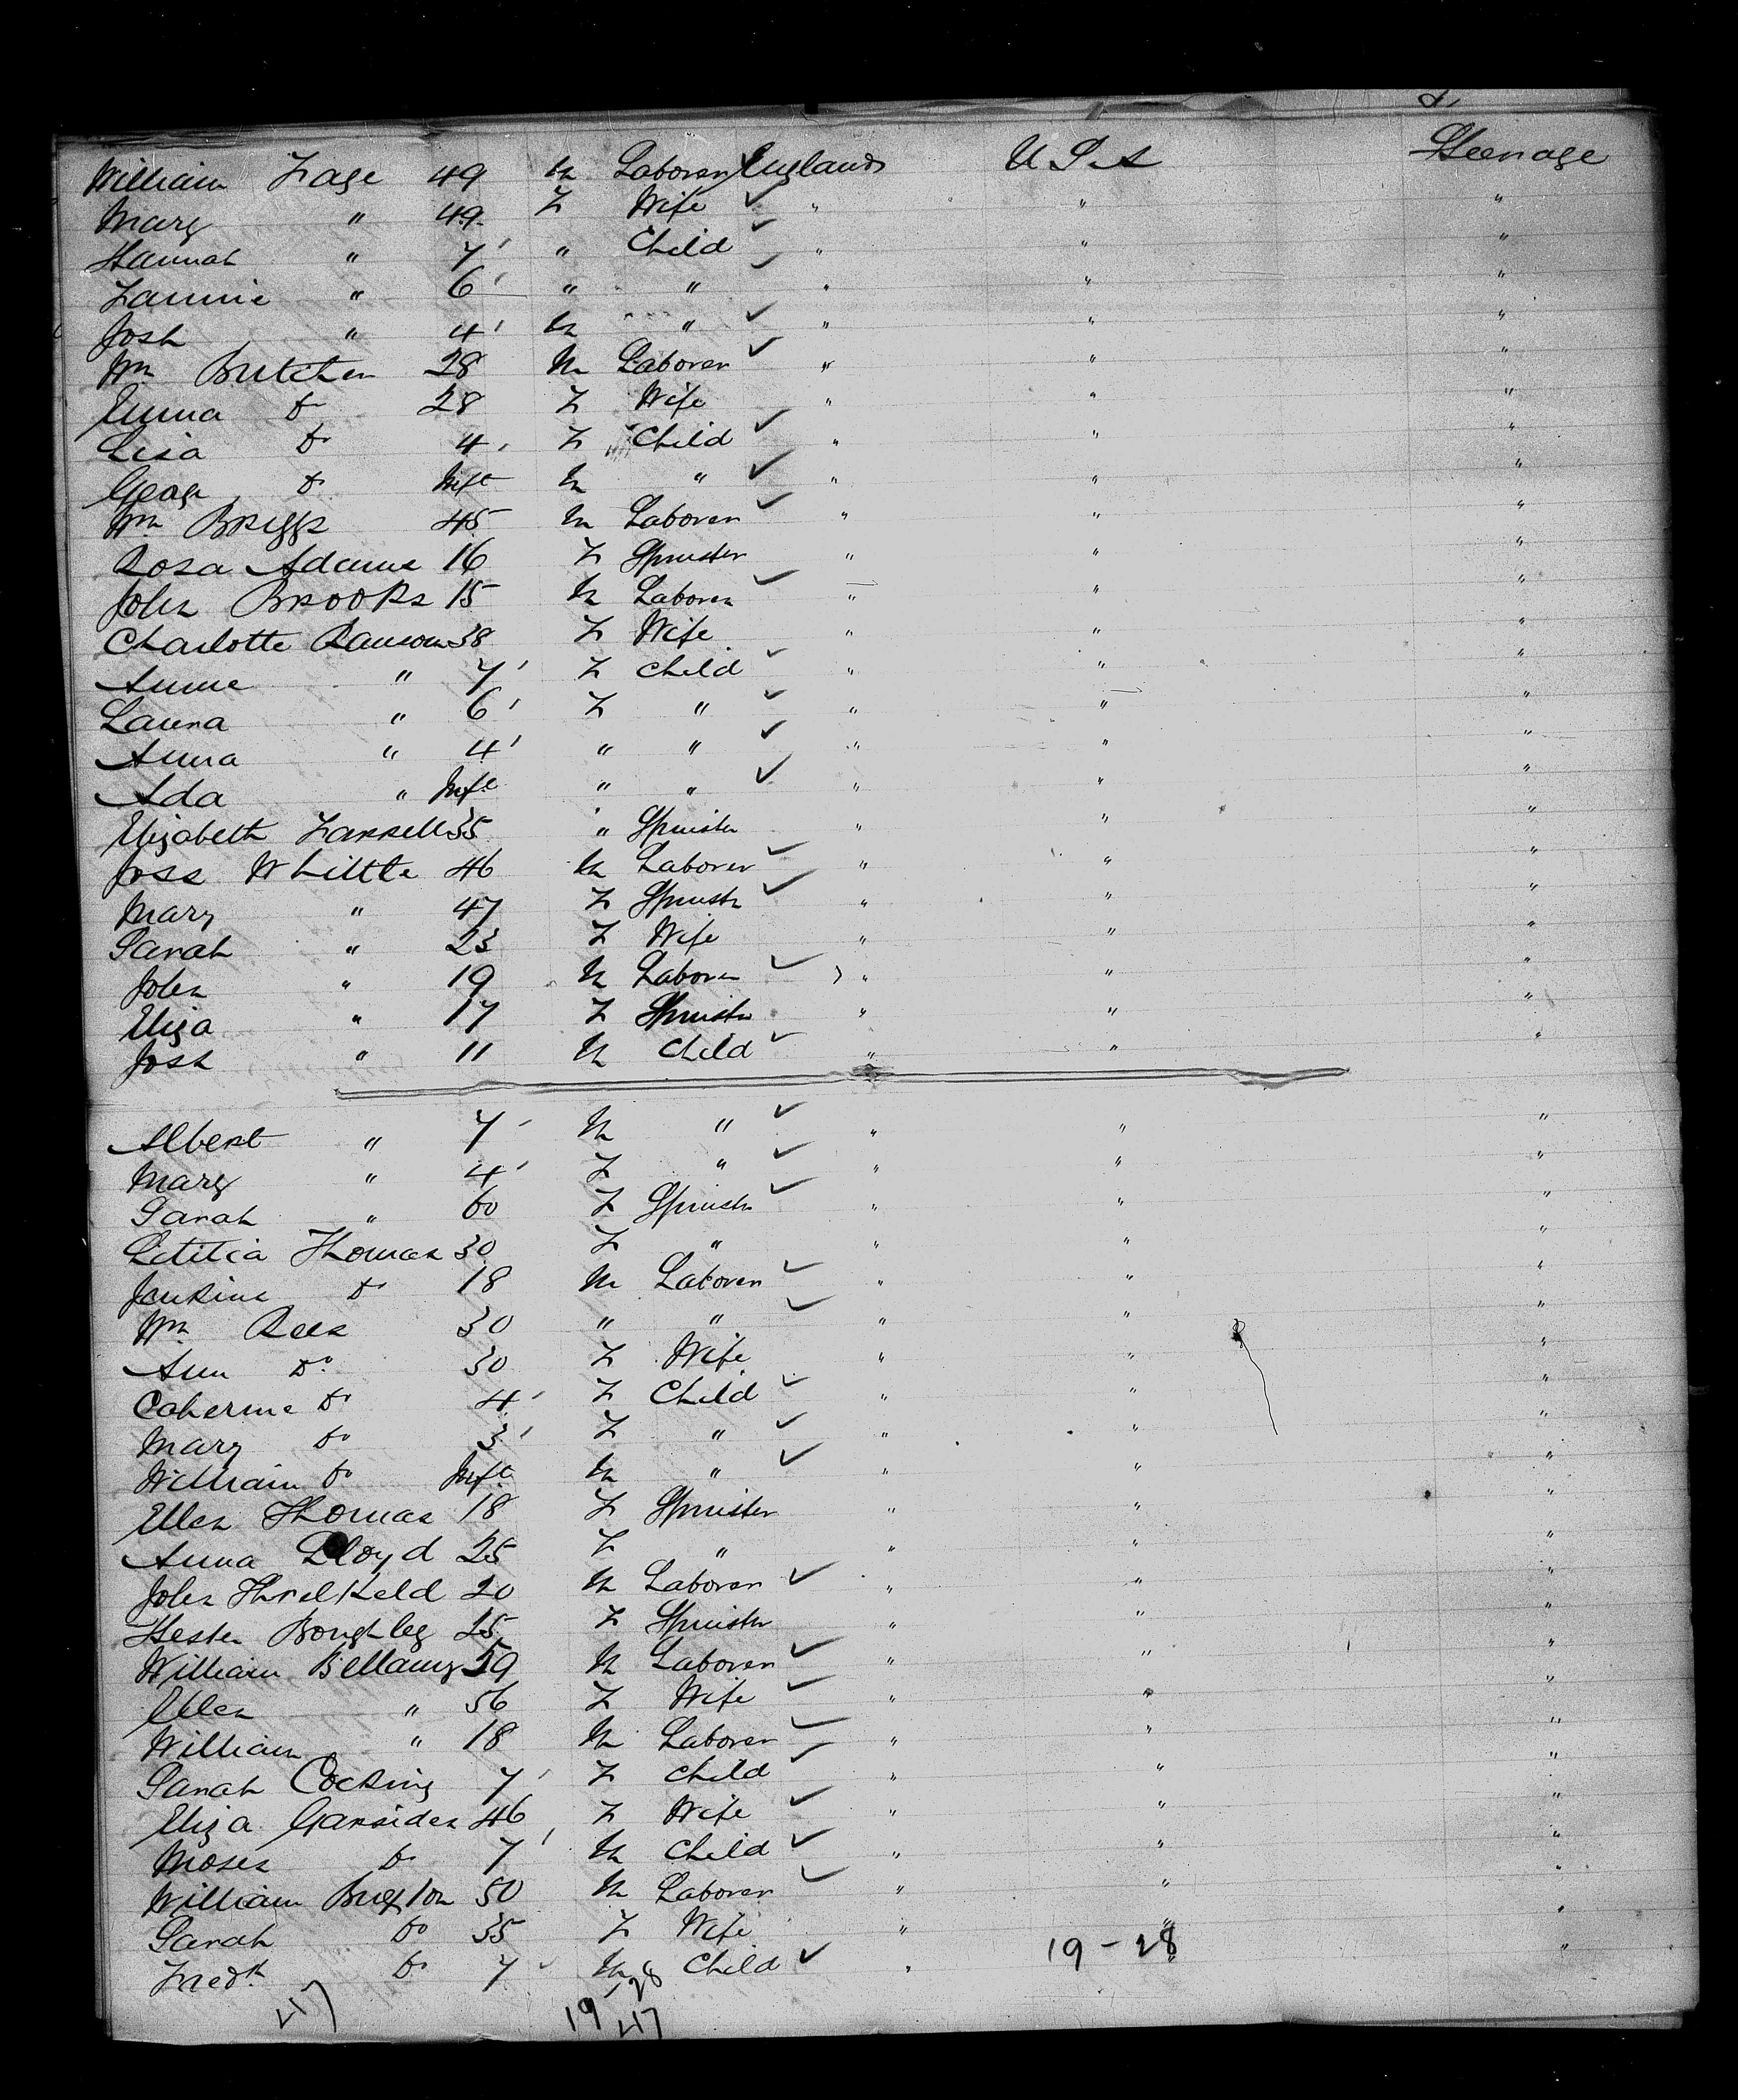 William Fage 49 M Laborer England U S A Steerage
Mary " 49 F Wife " " "
Hannah " 7 " Child " " "
Fannie " 6 " " " " "
Josh " 4 M " " " "
Wm Butcher 28 M Laborer " " "
Emma Do 28 F Wife " " "
Lisa Do 4 F Child " " "
Geoge Do Inft M " " " "
Wm Briggs 45 M Laborer " " "
Rosa Adams 16 F Spinster " " "
John Brooks 15 M Laborer " " "
Charlotte Ransom 38 F Wife " " "
Annie " 7 F Child " " "
Laura " 6 F " " " "
Anna " 4 " " " " "
Ada " Inft " " " " "
Elizabeth Farrell 35 " Spinster " " "
Joss Whittle 46 M Laborer " " "
Mary " 47 F Spinstr " " "
Sarah " 23 F Wife " " "
John " 19 M Laborer " " "
Eliza " 17 F Spinster " " "
Josh " 11 M Child " " "
Albert " 7 M " " " "
Mary " 4 F " " " "
Sarah " 60 F Spinstr " " "
Letitia Thomas 30 F " " " "
Jenkins Do 18 M Laborer " " "
Wm Rees 30 " " " " "
Ann Do 30 F Wife " " "
Caherine Do 4 F Child " " "
Mary Do 3 F " " " "
William Do Inft M " " " "
Ellen Thomas 18 F Spinster " " "
Anna Lloyd 25 F " " " "
John Threlkeld 20 M Laborer " " "
Hester Boughley 25 F Spinster " " "
William Bellamy 59 M Laborer " " "
Ellen " 56 F Wife " " "
William " 18 M Laborer " " "
Sarah Cocking 7 F Child " " "
Eliza Garsides 46 F Wife " " "
Moses Do 7 M Child " " "
William Buxton 50 M Laborer " " "
Sarah Do 35 F Wife " " "
Fredk Do 7 M Child " " "
19-28
47 19-28 47